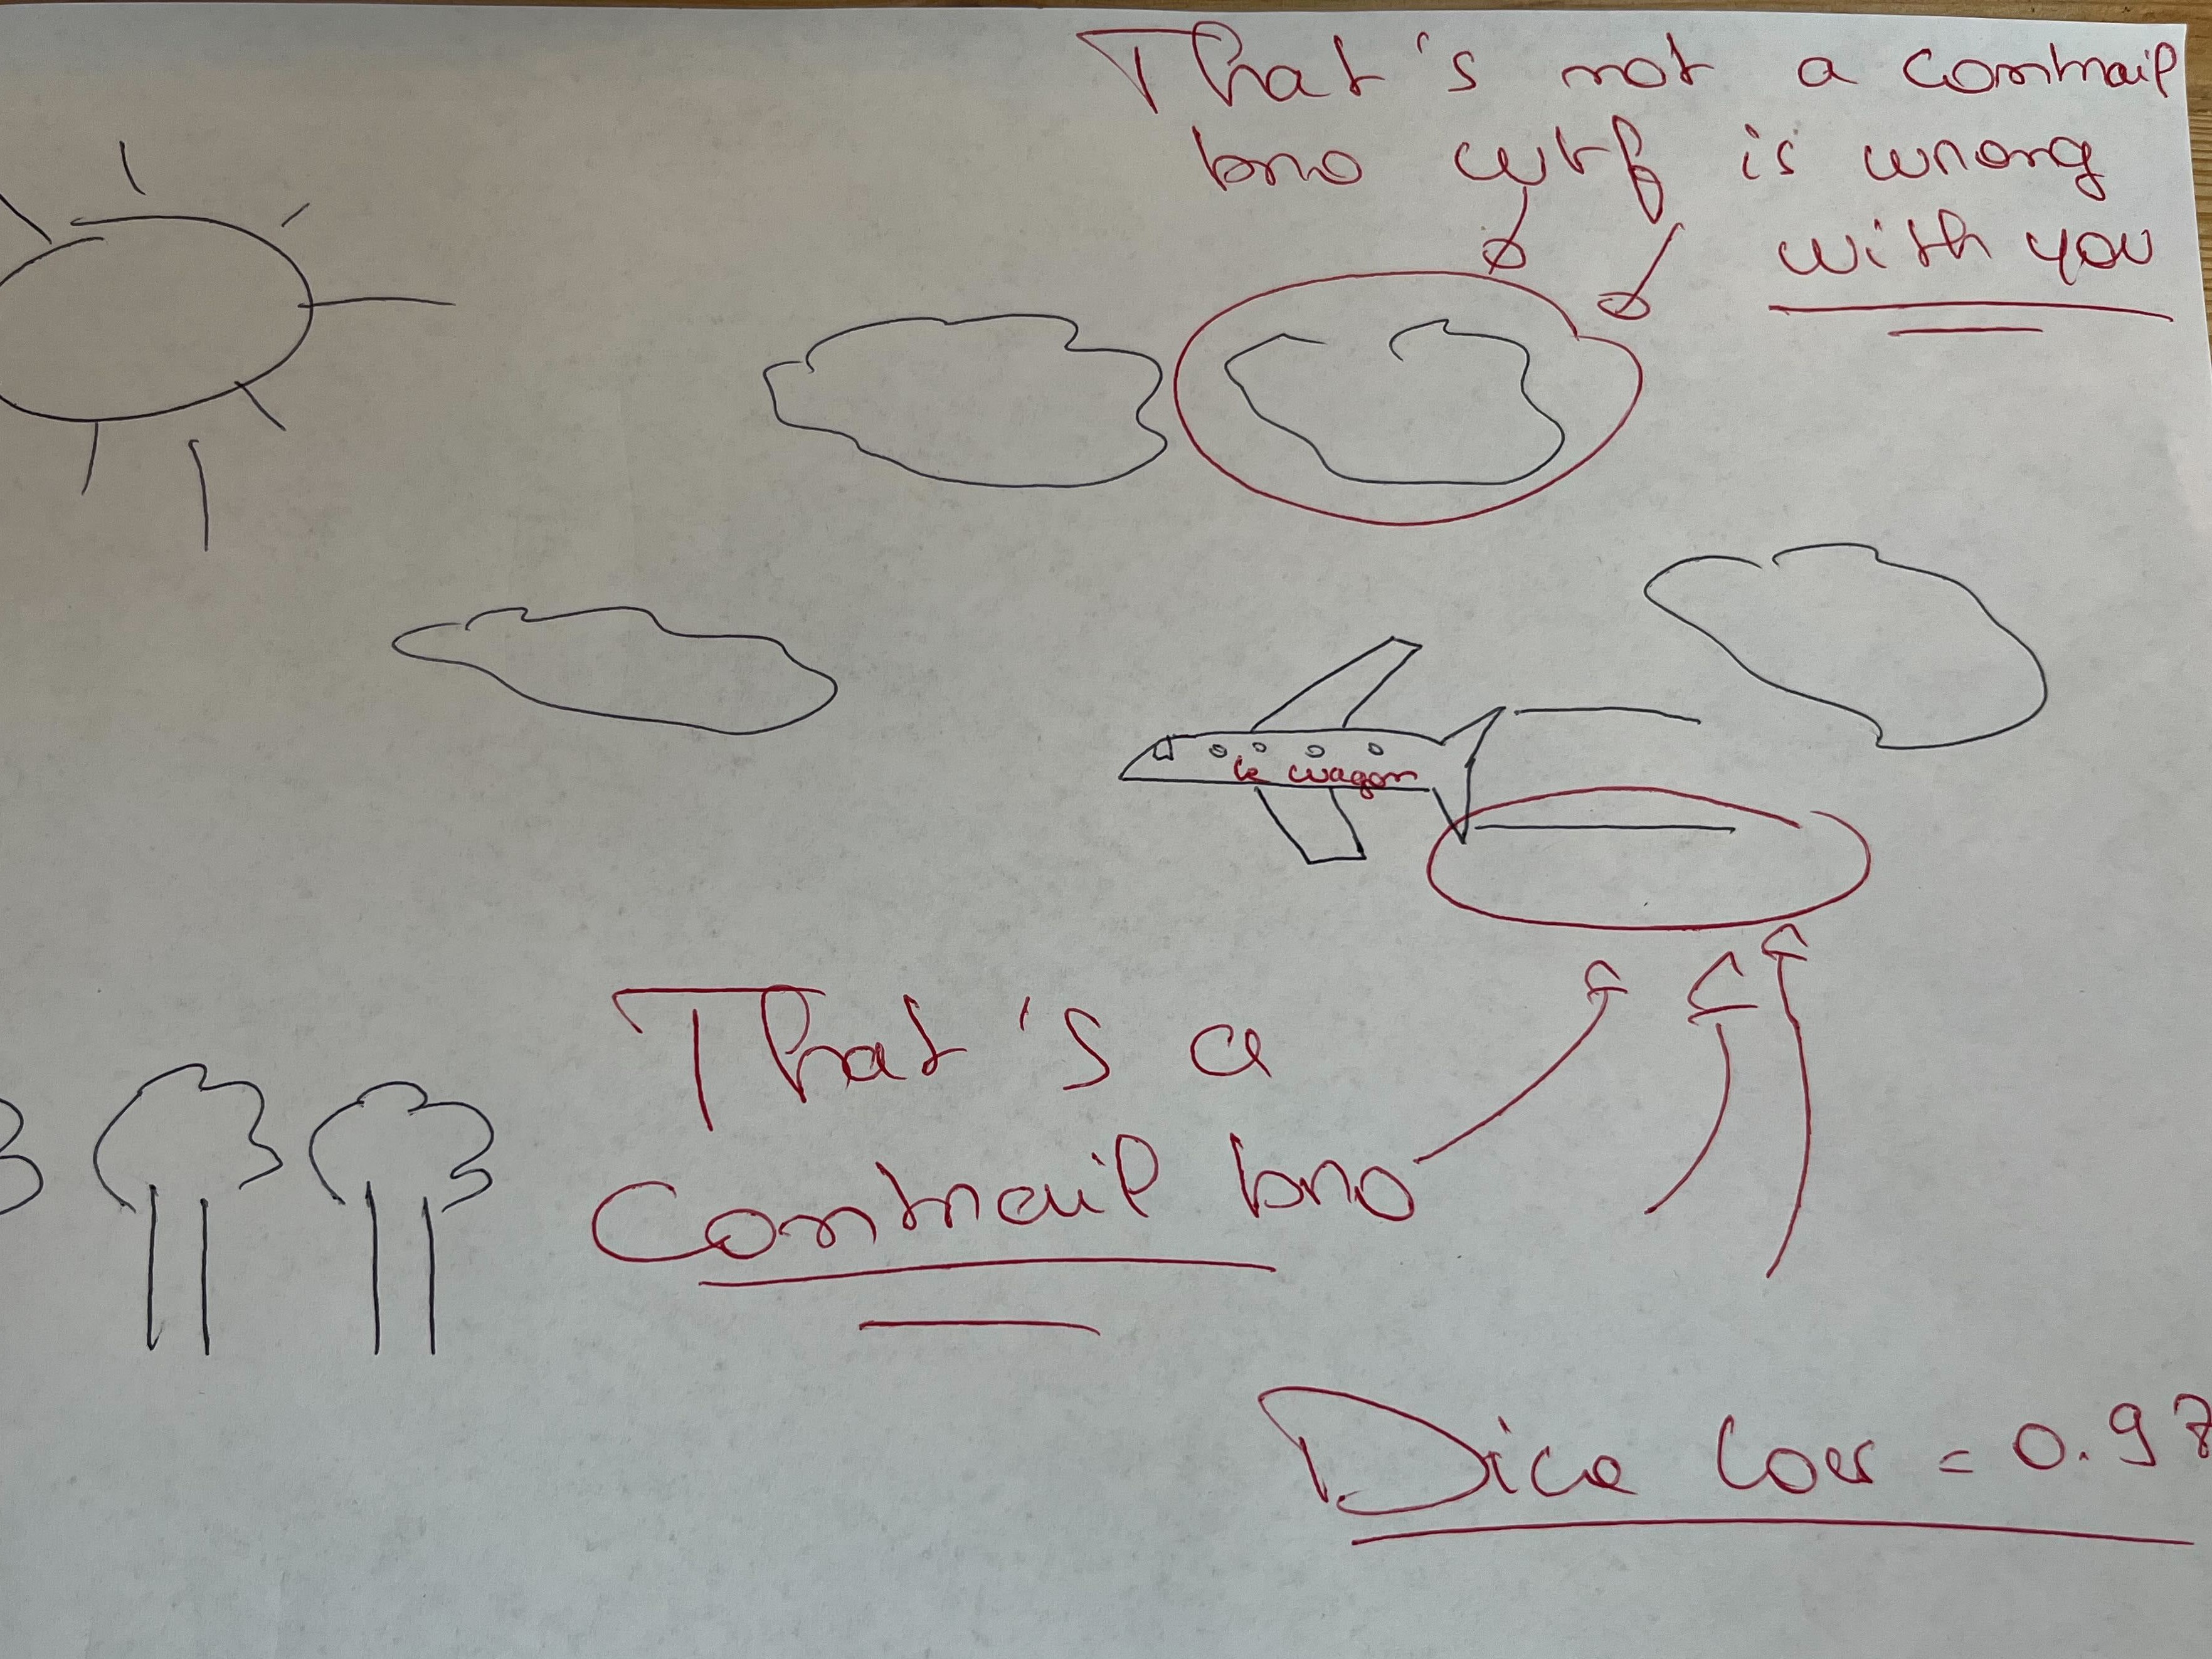 That's not a contrail
bro wtf is wrong
with you
le wagon
That's a
contrail bro
Dice Loss = 0.97